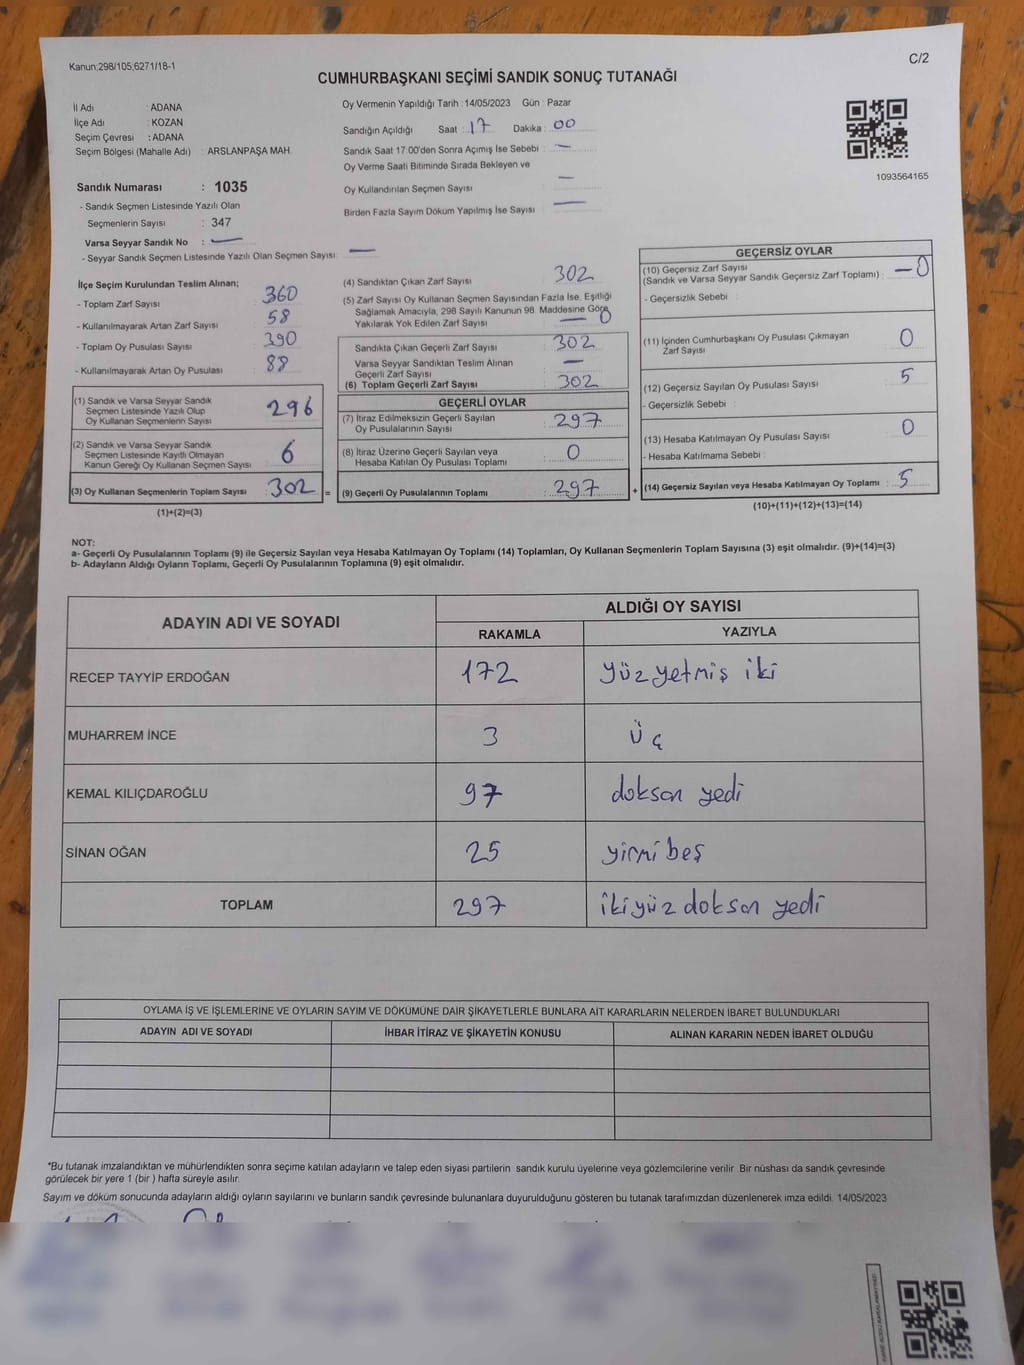 Kanun;298/105;6271/18-1
C/2
CUMHURBAŞKANI SEÇİMİ SANDIK SONUÇ TUTANAĞI
İl Adı : ADANA
İlçe Adı : KOZAN
Seçim Çevresi : ADANA
Seçim Bölgesi (Mahalle Adı) : ARSLANPAŞA MAH.
Sandık Numarası : 1035
- Sandık Seçmen Listesinde Yazılı Olan
Seçmenlerin Sayısı : 347
Varsa Seyyar Sandık No : —
- Seyyar Sandık Seçmen Listesinde Yazılı Olan Seçmen Sayısı: —
Oy Vermenin Yapıldığı Tarih : 14/05/2023 Gün : Pazar
Sandığın Açıldığı Saat : 17 Dakika : 00
Sandık Saat 17:00'den Sonra Açımış İse Sebebi : —
Oy Verme Saati Bitiminde Sırada Bekleyen ve
Oy Kullandırılan Seçmen Sayısı : —
Birden Fazla Sayım Döküm Yapılmış İse Sayısı : —
1093564165
İlçe Seçim Kurulundan Teslim Alınan;
- Toplam Zarf Sayısı : 360
- Kullanılmayarak Artan Zarf Sayısı : 58
- Toplam Oy Pusulası Sayısı : 390
- Kullanılmayarak Artan Oy Pusulası : 88
(1) Sandık ve Varsa Seyyar Sandık
Seçmen Listesinde Yazılı Olup
Oy Kullanan Seçmenlerin Sayısı : 296
(2) Sandık ve Varsa Seyyar Sandık
Seçmen Listesinde Kayıtlı Olmayan
Kanun Gereği Oy Kullanan Seçmen Sayısı : 6
(3) Oy Kullanan Seçmenlerin Toplam Sayısı : 302 =
(1)+(2)=(3)
(4) Sandıktan Çıkan Zarf Sayısı : 302
(5) Zarf Sayısı Oy Kullanan Seçmen Sayısından Fazla İse, Eşitliği
Sağlamak Amacıyla, 298 Sayılı Kanunun 98. Maddesine Göre
Yakılarak Yok Edilen Zarf Sayısı : — 0
Sandıkta Çıkan Geçerli Zarf Sayısı : 302
Varsa Seyyar Sandıktan Teslim Alınan
Geçerli Zarf Sayısı : —
(6) Toplam Geçerli Zarf Sayısı : 302
GEÇERLİ OYLAR
(7) İtiraz Edilmeksizin Geçerli Sayılan
Oy Pusulalarının Sayısı : 297
(8) İtiraz Üzerine Geçerli Sayılan veya
Hesaba Katılan Oy Pusulası Toplamı : 0
(9) Geçerli Oy Pusulalarının Toplamı : 297 +
GEÇERSİZ OYLAR
(10) Geçersiz Zarf Sayısı
(Sandık ve Varsa Seyyar Sandık Geçersiz Zarf Toplamı) : — 0
- Geçersizlik Sebebi :
(11) İçinden Cumhurbaşkanı Oy Pusulası Çıkmayan
Zarf Sayısı : 0
(12) Geçersiz Sayılan Oy Pusulası Sayısı : 5
- Geçersizlik Sebebi :
(13) Hesaba Katılmayan Oy Pusulası Sayısı : 0
- Hesaba Katılmama Sebebi :
(14) Geçersiz Sayılan veya Hesaba Katılmayan Oy Toplamı : 5
(10)+(11)+(12)+(13)=(14)
NOT:
a- Geçerli Oy Pusulalarının Toplamı (9) ile Geçersiz Sayılan veya Hesaba Katılmayan Oy Toplamı (14) Toplamları, Oy Kullanan Seçmenlerin Toplam Sayısına (3) eşit olmalıdır. (9)+(14)=(3)
b- Adayların Aldığı Oyların Toplamı, Geçerli Oy Pusulalarının Toplamına (9) eşit olmalıdır.
ADAYIN ADI VE SOYADI
ALDIĞI OY SAYISI
RAKAMLA YAZIYLA
RECEP TAYYİP ERDOĞAN 172 yüz yetmiş iki
MUHARREM İNCE 3 üç
KEMAL KILIÇDAROĞLU 97 doksan yedi
SİNAN OĞAN 25 yirmi beş
TOPLAM 297 iki yüz doksan yedi
OYLAMA İŞ VE İŞLEMLERİNE VE OYLARIN SAYIM VE DÖKÜMÜNE DAİR ŞİKAYETLERLE BUNLARA AİT KARARLARIN NELERDEN İBARET BULUNDUKLARI
ADAYIN ADI VE SOYADI İHBAR İTİRAZ VE ŞİKAYETİN KONUSU ALINAN KARARIN NEDEN İBARET OLDUĞU
*Bu tutanak imzalandıktan ve mühürlendikten sonra seçime katılan adayların ve talep eden siyasi partilerin sandık kurulu üyelerine veya gözlemcilerine verilir. Bir nüshası da sandık çevresinde
görülecek bir yere 1 (bir ) hafta süreyle asılır.
Sayım ve döküm sonucunda adayların aldığı oyların sayılarını ve bunların sandık çevresinde bulunanlara duyurulduğunu gösteren bu tutanak tarafımızdan düzenlenerek imza edildi. 14/05/2023